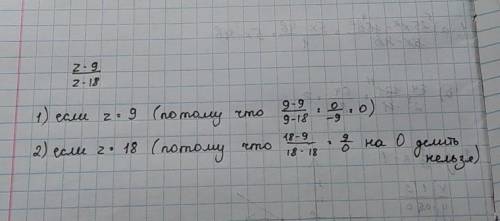 z-9
z-18
1) если z=9 (потому что 9-9/9-18 = 0/-9 = 0)
2) если z=18 (потому что 18-9/18-18 = 9/0 на 0 делить
нельзя)